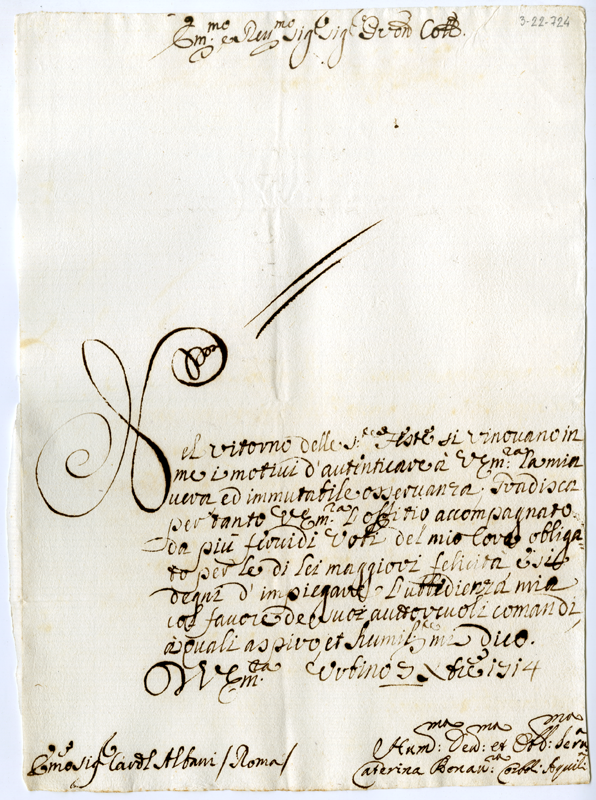 3-22-724
Em.mo e Rev.mo Sig.r Sig.r Pron Coll.
Nel ritorno delle S.te Feste si rinouano in
me i motiui d'autenticare à V. Em.za la mia
uera ed immutabile osseruanza; Gradisca
per tanto V. Em.za l'offitio accompagnato
da più feruidi Voti del mio Core obliga-
to per le di Lei maggiori felicità e si
degni d'impiegare l'ubbidienza mia
col fauore de suoi autoreuoli comandi,
à quali aspiro, et humil.te mi dico.
Di V. Em.za Urbino Xbre 1714
Em.o Sig.r Card.l Albani / Roma /
Hum.ma Deu.ma et Obb.ma Ser.a
Caterina Bonau.ra